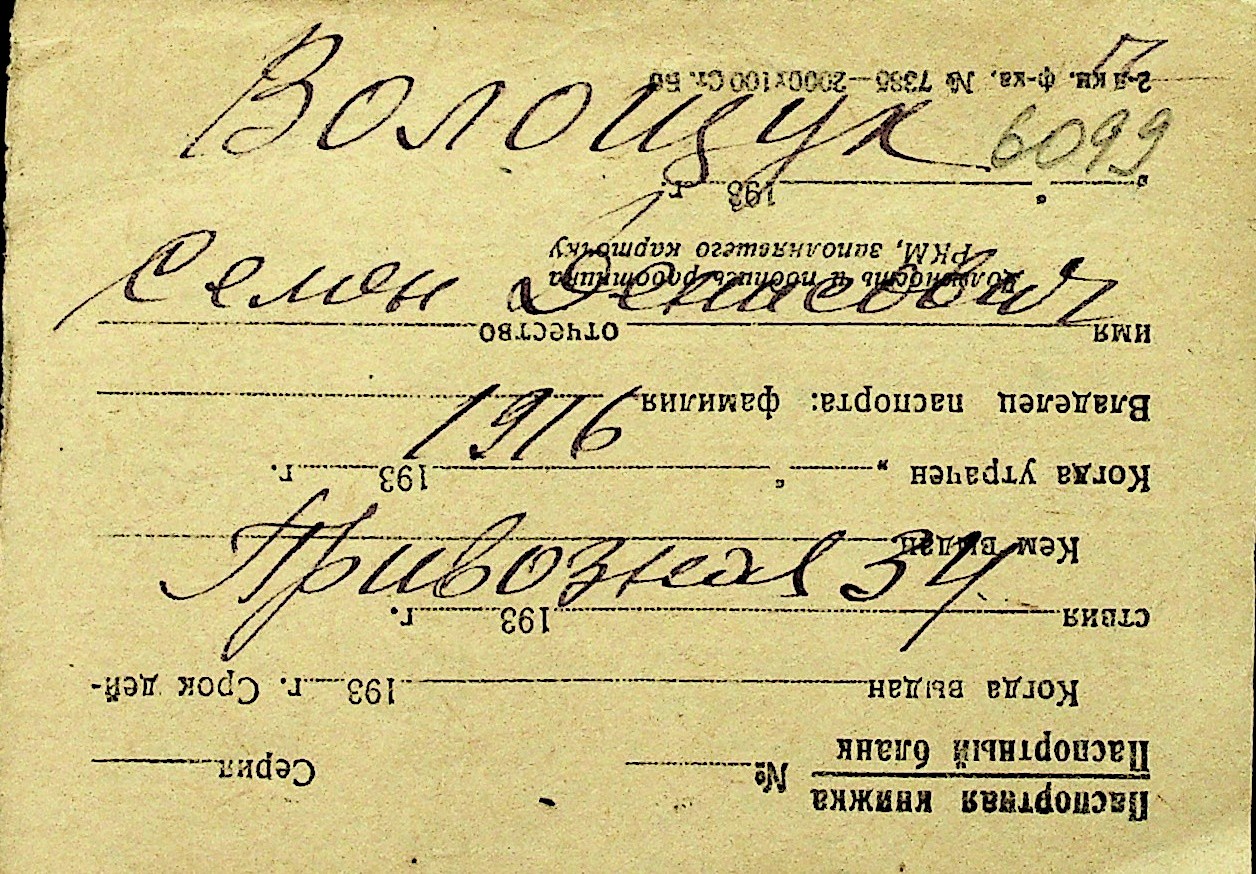 Волощук
6099
Семен Денисович
1916
Привозная 34
Паспортная книжка
Паспортный бланк
№ Серия
Когда выдан 193 г. Срок дей-
ствия 193 г.
Кем выдан
Когда утрачен „ “ 193 г.
Владелец паспорта: фамилия
имя отчество
Должность и подпись работника
РКМ, заполнявшего карточку
„ “ 193 г.
2-я кн. ф-ка, № 7385—2000х100 Ст. Бо